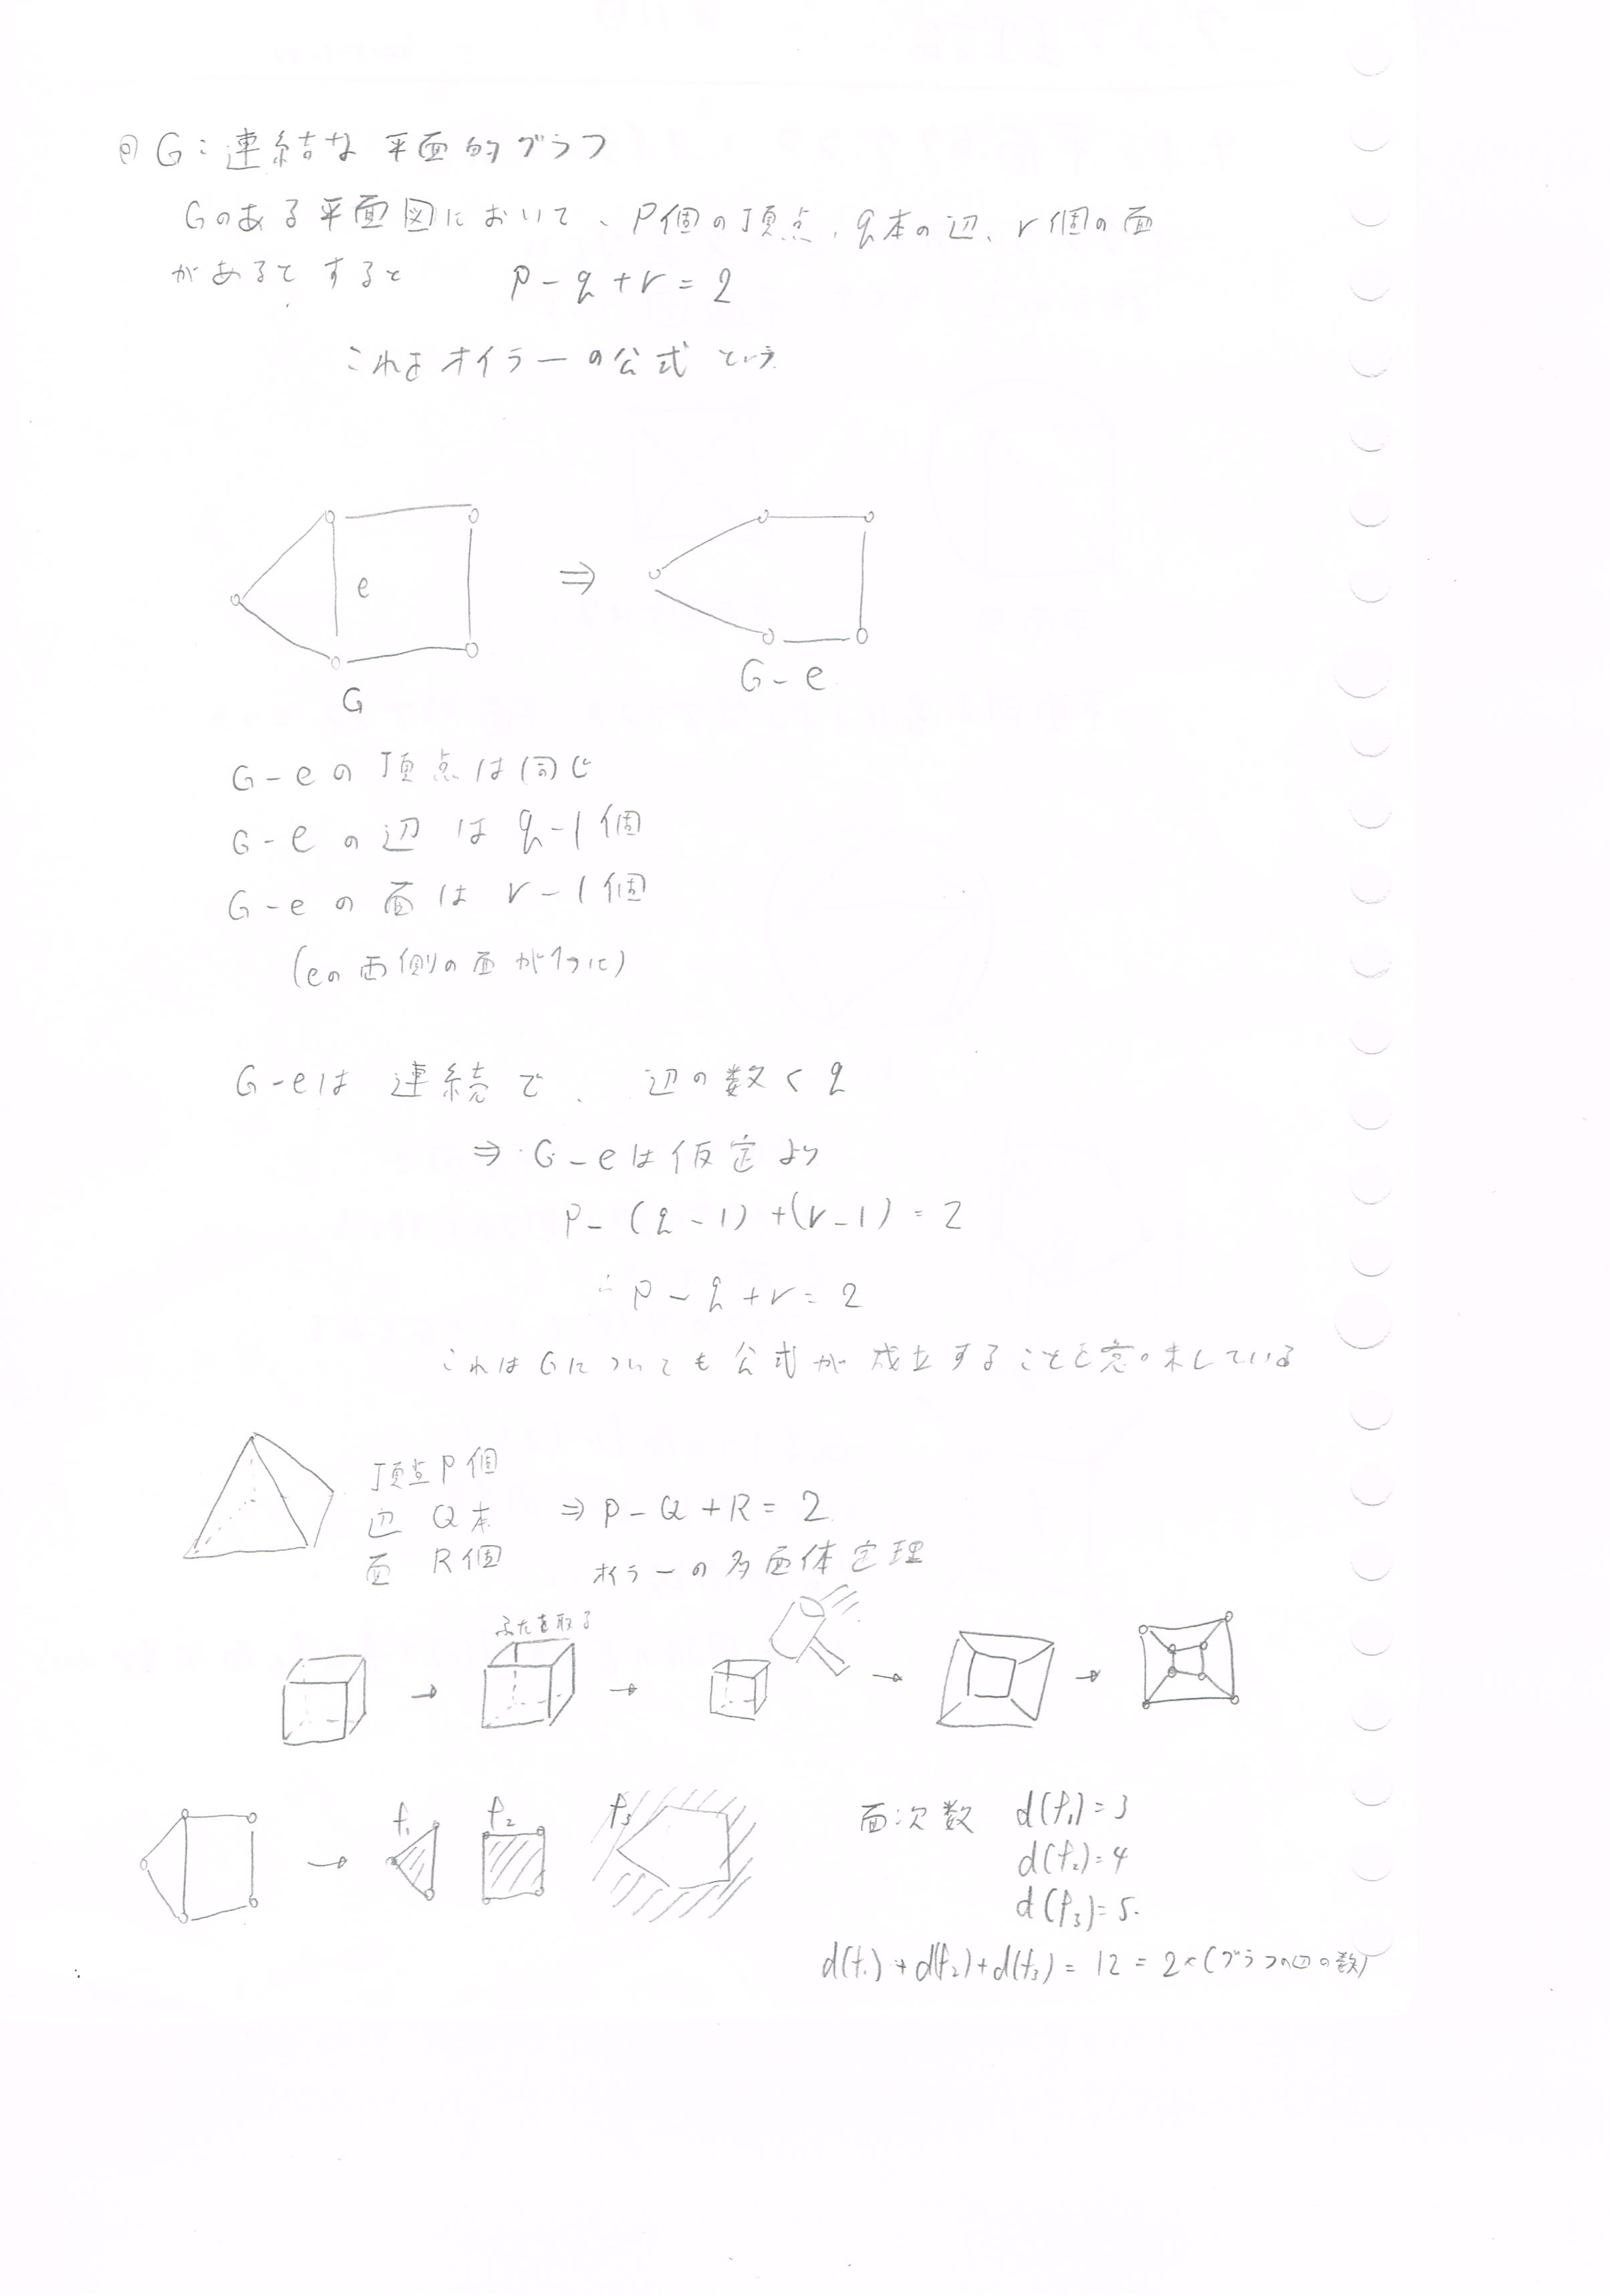 G：連結な平面的グラフ
Gのある平面図において、P個の頂点、q本の辺、r個の面
があるとすると p-q+r=2
これをオイラーの公式という
e
⇒
G
G-e
G-eの頂点は同じ
G-eの辺はq-1個
G-eの面はr-1個
(eの両側の面が1つに)
G-eは連続で、辺の数<q
⇒ G-eは仮定より
p-(q-1)+(r-1)=2
∴p-q+r=2
これはGについても公式が成立することを意味している
頂点P個
辺 Q本 ⇒ P-Q+R=2
面 R個 オイラーの多面体定理
ふたを取る
→ → → →
f₁ f₂ f₃
→
面次数 d(f₁)=3
d(f₂)=4
d(f₃)=5.
d(f₁)+d(f₂)+d(f₃)=12=2×(グラフの辺の数)